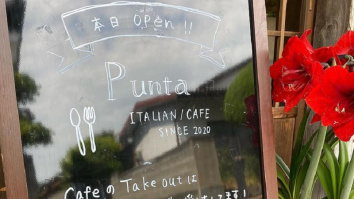 本日 OPEn !!
Punta
ITALIAN/CAFE
SINCE 2020
Cafeの Take outは
してます!